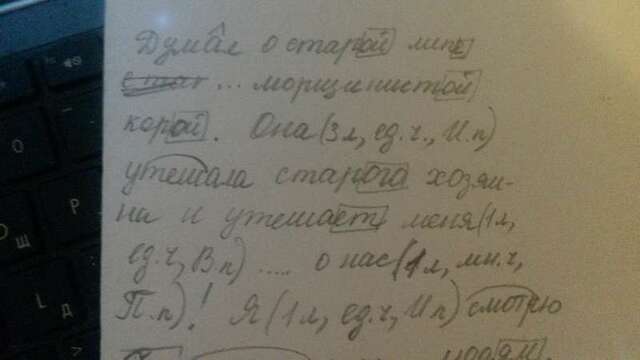 Думал о старой липе
... морщинистой
корой. Она (3л, ед.ч., И.п)
утешала старого хозяи-
на и утешает меня (1л,
ед.ч, В.п) .... о нас (1л, мн.ч,
П.п)! Я (1л, ед.ч, Ип) смотрю
О
Щ
Р
L
Д